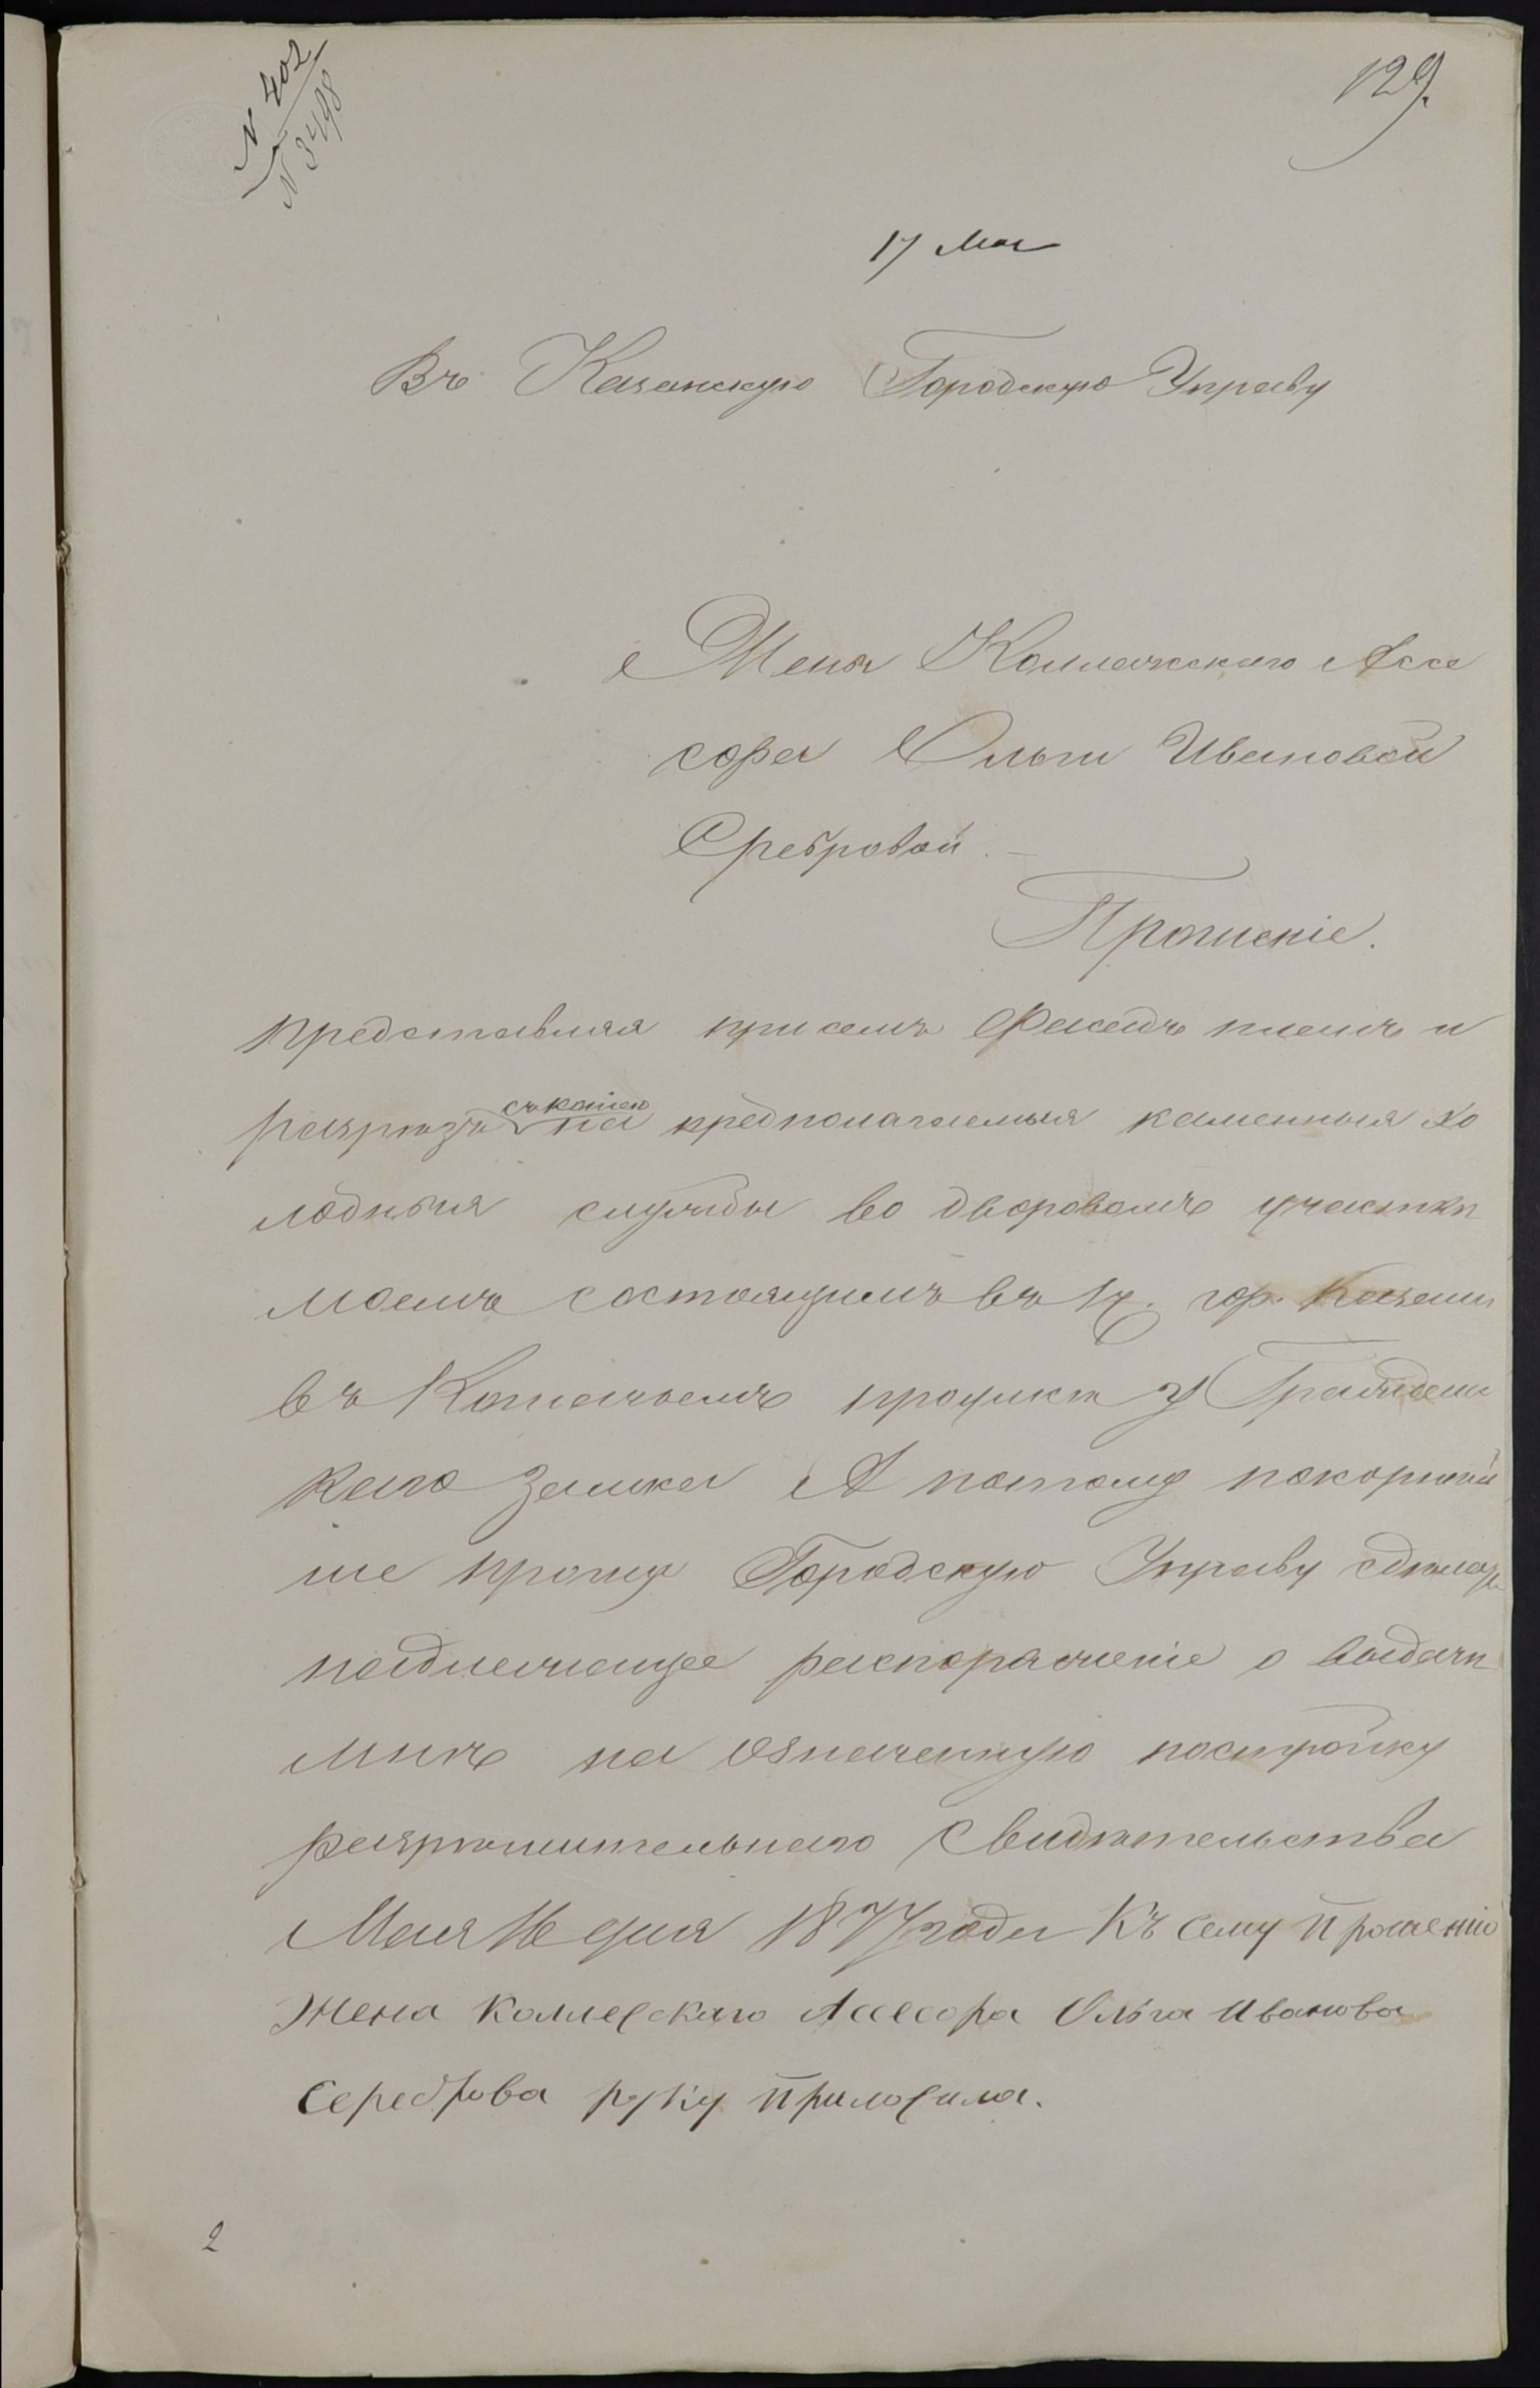 N 402
N 3498
129.
17 Мая
Въ Казанскую Городскую Управу
Жены Коллежскаго Ассе
сора Ольги Ивановой
Сребровой. —
Прошеніе.
Представляя при семъ Фасадъ планъ и
разрѣзъ съ копіею на предполагаемыя каменныя хо
лодныя службы во дворовомъ участкѣ
моемъ состоящимъ въ 1 ч. гор. Казани
въ Кошачьемъ проулкѣ у Граждан
каго замка А потому покорнѣй
ше прошу Городскую Управу сдѣлать
надлежащее распоряженіе о выдачѣ
мнѣ на означенную постройку
разрѣшительнаго Свидѣтельства
Мая 16 дня 1877 года Къ сему прошенію
Жена Коллежскаго Ассесора Ольга Иванова
Сереброва руку приложила.
2